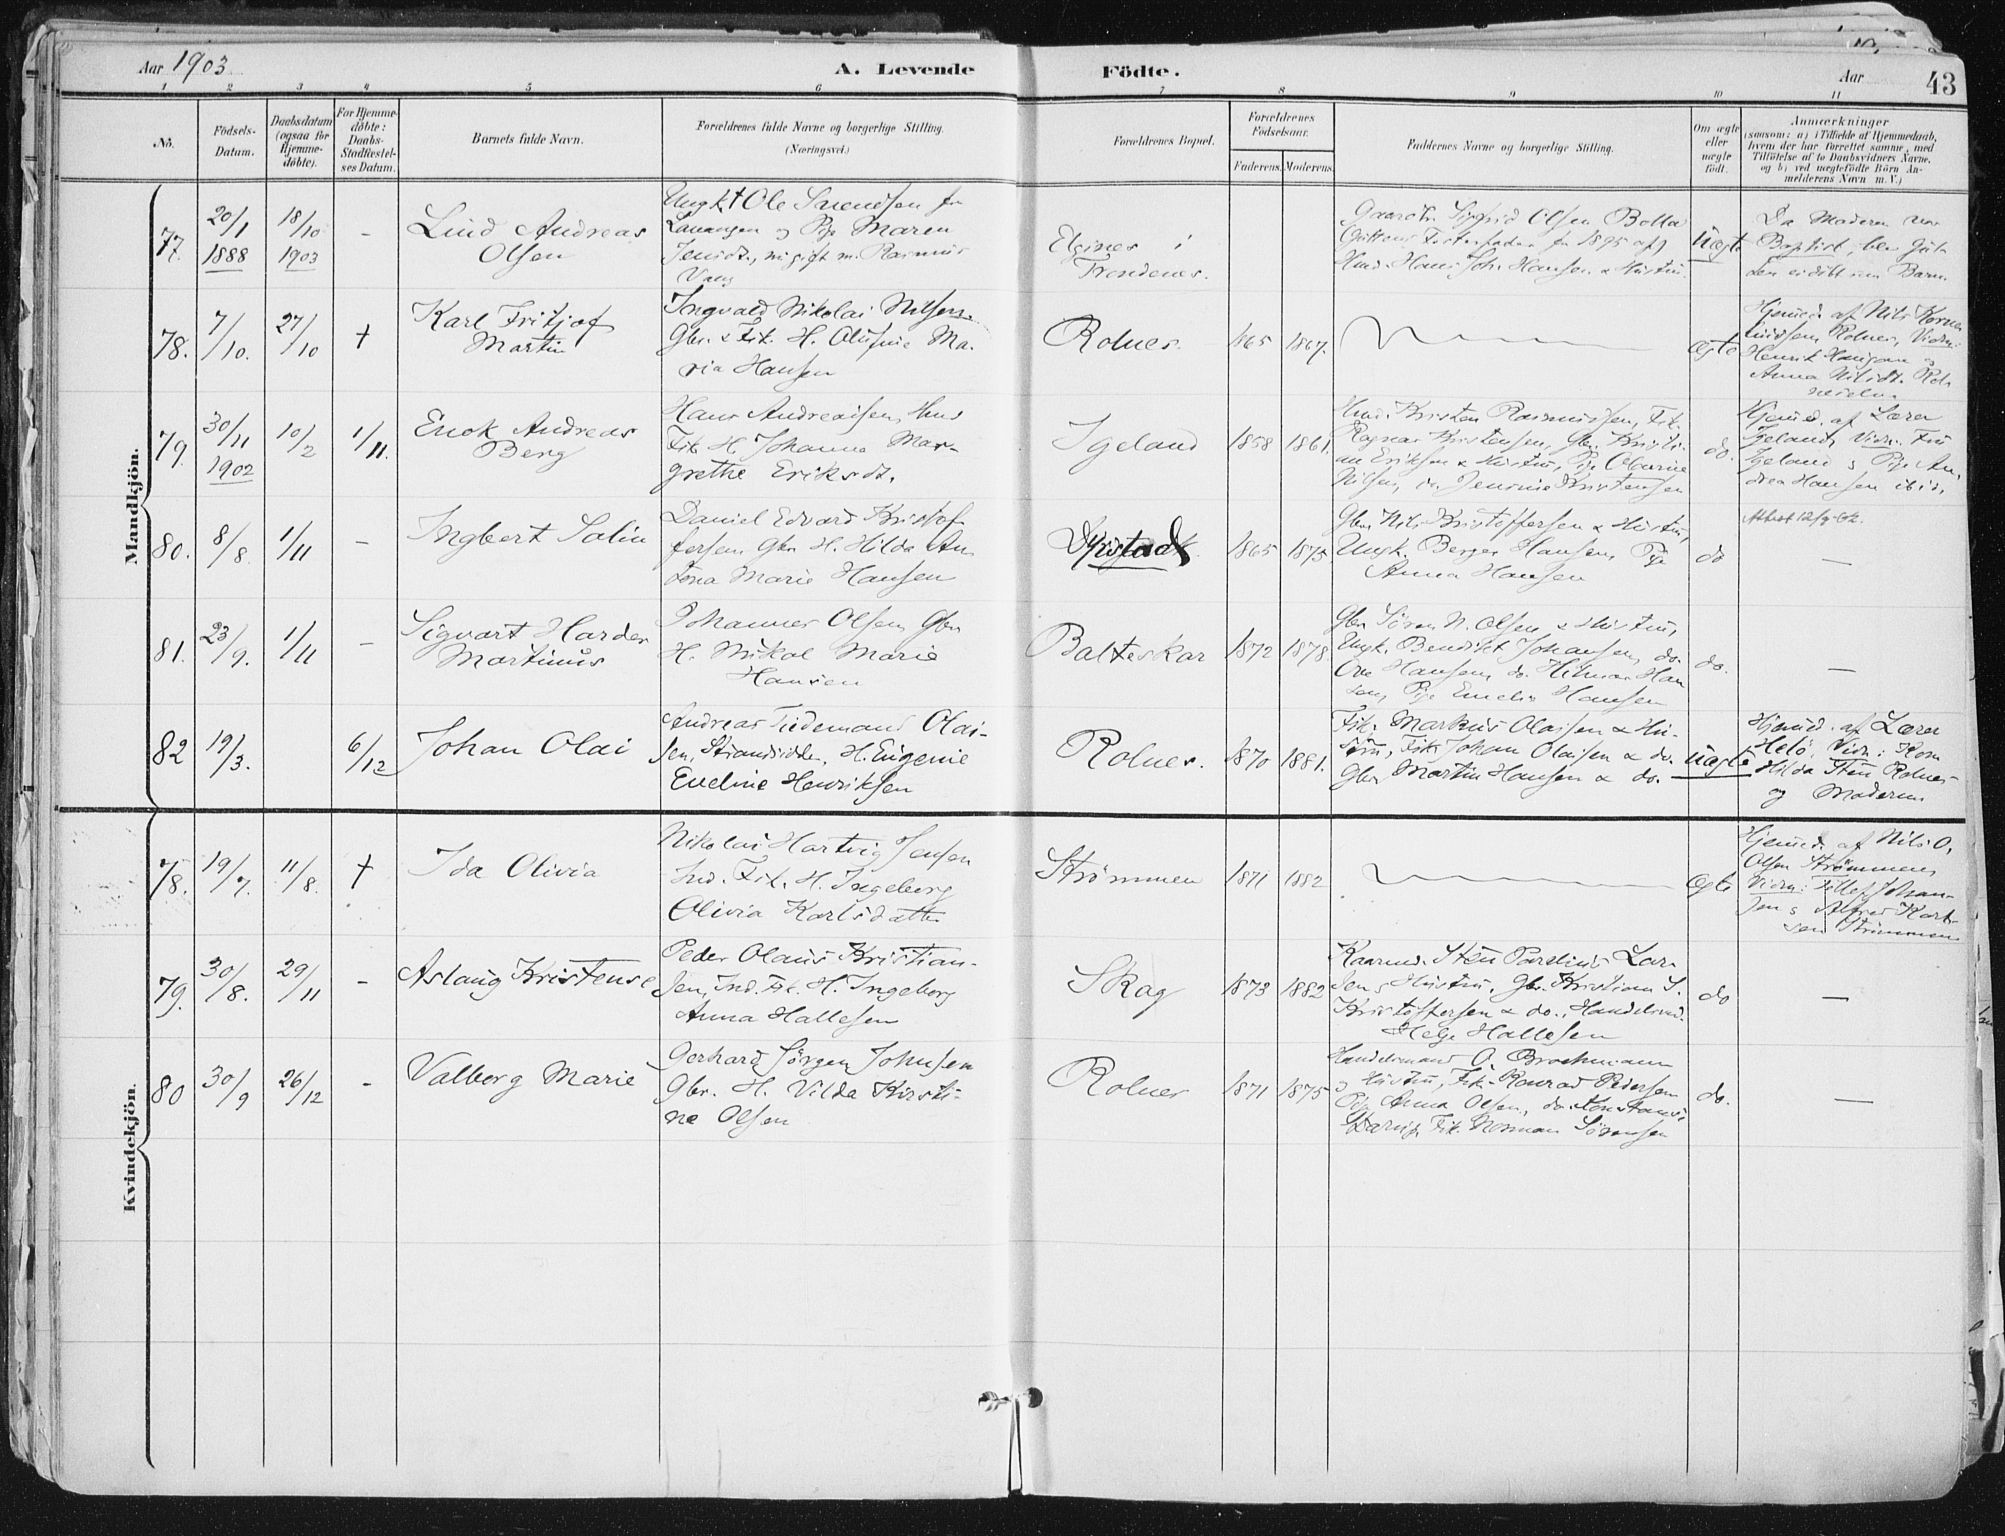 Aar 1903
A. Levende
Födte.
Aar
43
1 2 3 4 5 6 7 8 9 10 11
No.
Födsels-
Datum.
Daabsdatum
(ogsaa for
Hjemme-
döbte).
For Hjemme-
döbte:
Daabs-
Stadfæstel-
ses Datum.
Barnets fulde Navn.
Forældrenes fulde Navne og borgerlige Stilling.
(Næringsvei.)
Forældrenes Bopæl.
Forældrenes
Födselsaar.
Faderens. Moderens.
Faddernes Navne og borgerlige Stilling.
Om ægte
eller
uægte
födt.
Anmærkninger
(saasom: a) i Tilfælde af Hjemmedaab,
hvem der har forrettet samme, med
Tilföielse af to Daabsvidners Navne.
og b) ved uægtefödte Börn An-
melderens Navn m. V.)
Mandkjön.
77.
20/1
1888
18/10
1903
-
Lind Andreas
Olsen
Ungk Ole Svendsen fra
Lavangen og Pige Maren
Jensdt., nu gift m. Rasmus
Vang
Elgsnes i
Trondenes.
Gaardbr. Sigfrid Olsen Bolla
Hmd. Hans Joh. Hansen & Hustru.
Uægte
Da Moderen var
Baptist, blev
78.
7/10.
27/10
+
Karl Fritjof
Martin
Ingvald Nikolai Nilsen.
Gbr. & Fik. H. Olufine Ma-
ria Hansen
Rolnes.
1865
1867.
ægte
Hjemmed. af Nils Korne-
liussen Rolnes, Vidn:
Henrik Haugan og
Anna Nilsdt. Rol-
79.
30/11
1902
10/2
1/11.
Enok Andreas
Berg
Hans Andreassen, Hus
Fik H Johanna Mar-
grethe Eriksdt.
Igeland
1858
1861.
Hmd. Kristen Rasmussen, Fik.
Ragnar Kristensen, Gbr. Kristi-
an Eriksen & Hustru, Pige Olavine
Nilsen, do. Jensine Kristensen
do.
Hjemmed. af Lærer
Igeland, Vidn:
Igeland & Pige An-
drea Hansen ibid.
80.
8/8.
1/11
-
Ingbert Salin
Daniel Edvard Kristof-
fersen Gbr H. Hilda An-
tona Marie Hansen
Dyrstad
1865
1875
Gbr. Nils Kristoffersen & Hustru,
Ungk. Berger Hansen, Pige
Anna Hansen
do
Attest 12/9-62.
-
81.
23/9.
1/11
-
Sigvart Harder
Martinus
Johannes Olsen Gbr
H. Nikol. Marie
Hansen
Balteskar
1872
1878.
Gbr Sören N. Olsen & Hustru,
Ungk. Benedikt Johansen, do.
Ove Hansen, do. Hilmar Han-
sen, Pige Emelie Hansen
do.
-
82
19/3.
6/12
Johan Olai
Andreas Tidemand Olai-
sen, Strandsidder, H. Eugenie
Eveline Henriksen
Rolnes.
1870
1881.
Fik. Markus Olaisen & Hu-
stru, Fik Johan Olaisen & do.
Gbr Martin Hansen & do.
uægte
Hjemmed. af Lærer
Helö, Vidn: Kone
Hilda Steu Rolnes
og Moderen
Kvindekjön.
78.
19/7.
11/8.
+
Ida Olivia
Nikolai Hartvig Jensen
Ind. Fik. H. Ingeborg
Olivia Karlsdatter
Strömmen
1871
1882
ægte
Hjemmed. af Nils O.
Olsen Strömmen,
Vidn: Johan-
sen & Alfred Karl-
sen Strömmen
79.
30/8.
29/11
-
Aslaug Kristense
Peder Olaus Kristian-
sen, Ind. Fik. H. Ingeborg
Anna Hallesen
Skog
1873
1882
Kaarmd. Steu Pardinus Lar-
sen & Hustru, Gbr. Kristian S.
Kristoffersen & do., Handelsmd.
Helge Hallesen
do
-
80
30/9
26/12
-
Valborg Marie
Gerhard Jörgen Johnsen
Gbr. H. Vilda Kirsti-
ne Olsen
Rolnes
1871
1875
Handelsmand O. Brochmann
& Hustru, Fik Konrad Pedersen
Pige Anna Olsen, do. Konstanse
Fik. Norman Sörensen
do.
-